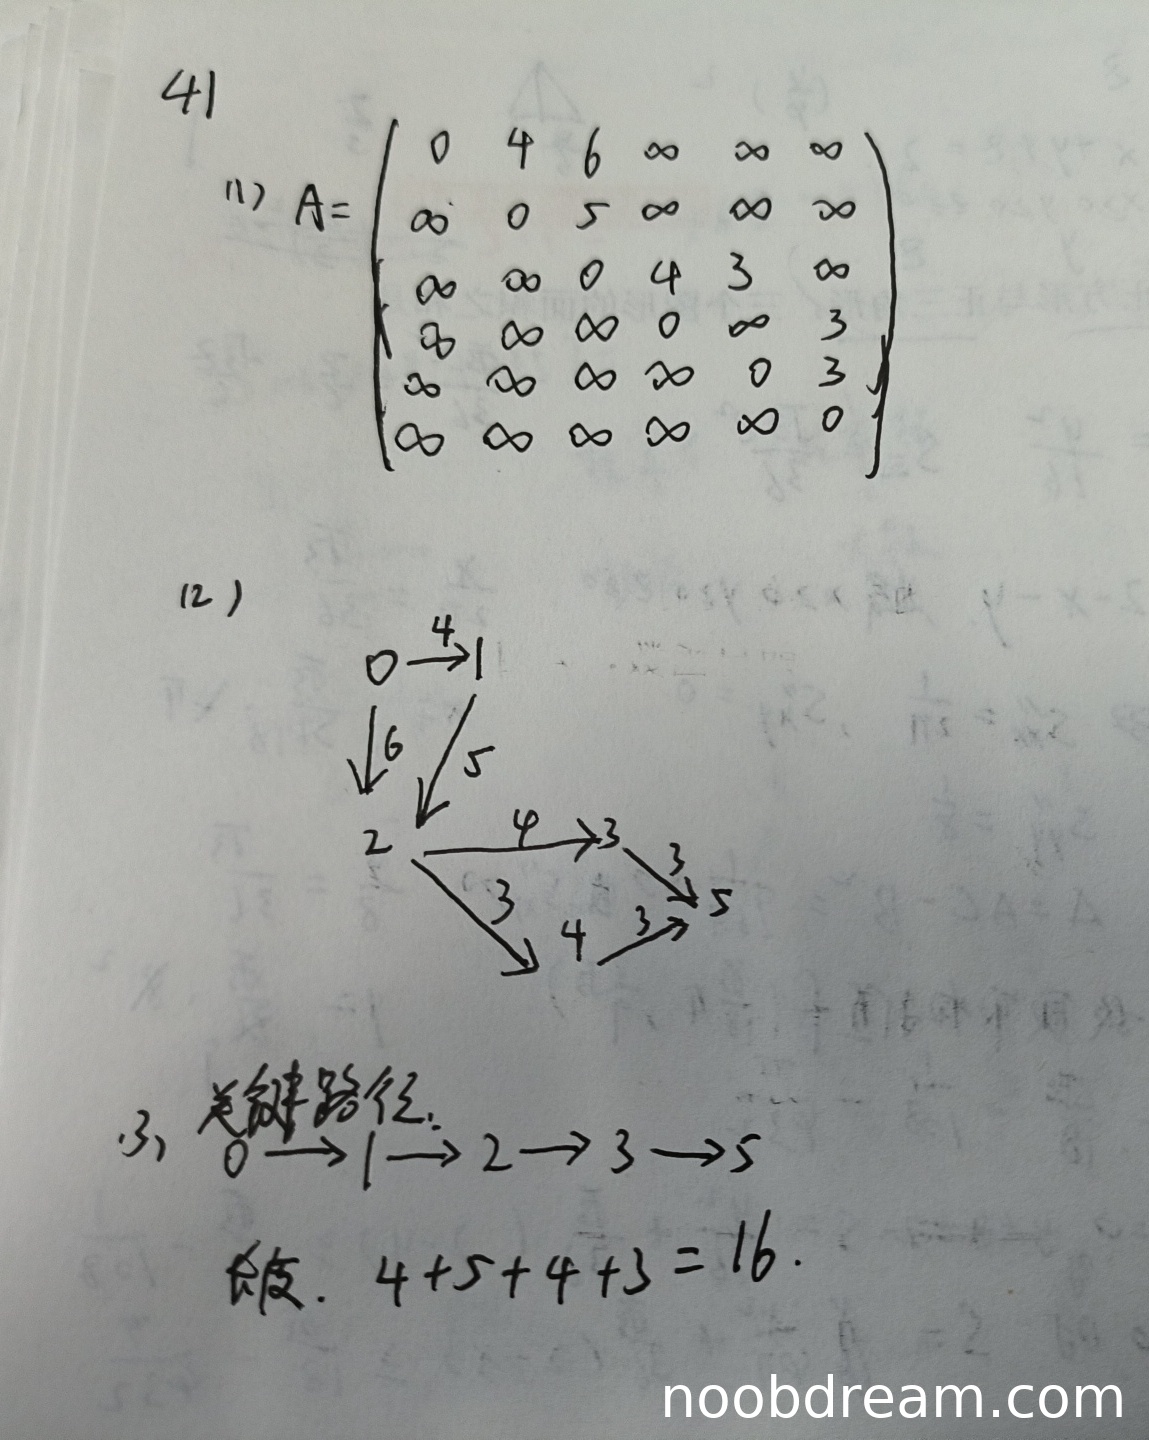 41
(1) A=
0 4 6 ∞ ∞ ∞
∞ 0 5 ∞ ∞ ∞
∞ ∞ 0 4 3 ∞
∞ ∞ ∞ 0 ∞ 3
∞ ∞ ∞ ∞ 0 3
∞ ∞ ∞ ∞ ∞ 0
(2)
4
0 → 1
6 5
2 4 3 3
3 4 3 5
(3) 关键路径.
0 → 1 → 2 → 3 → 5
长度. 4+5+4+3=16.
noobdream.com